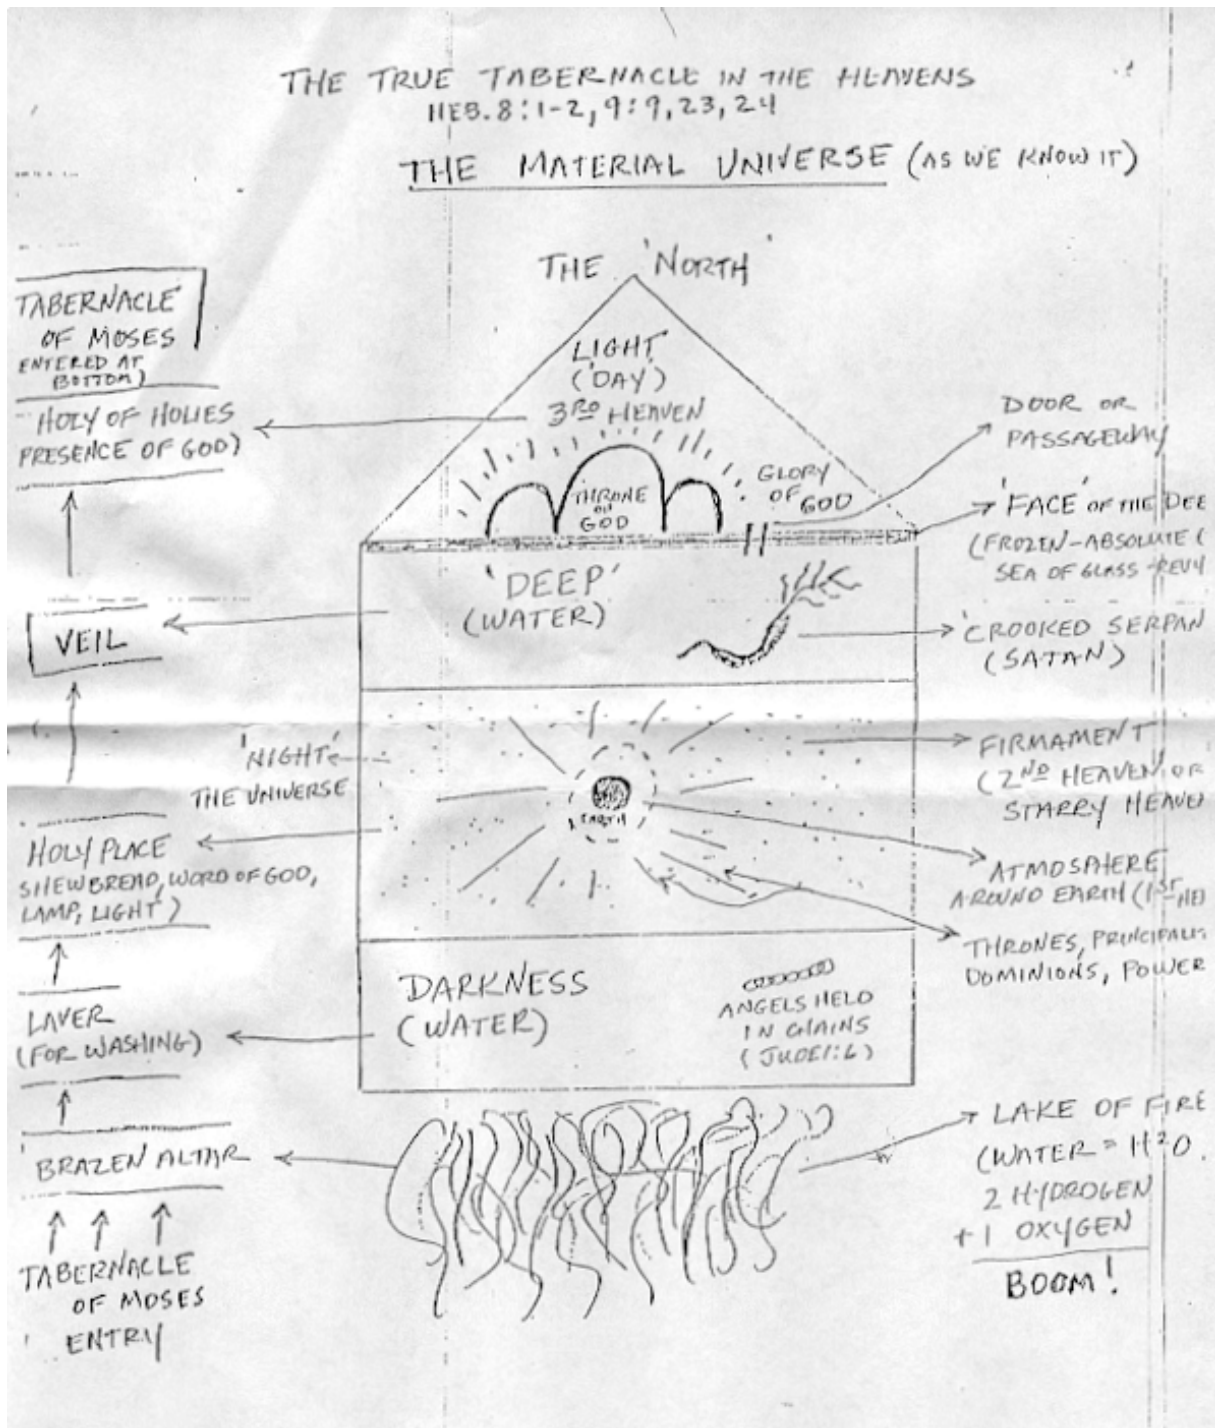 THE TRUE TABERNACLE IN THE HEAVENS
HEB. 8:1-2, 9:9, 23, 24
THE MATERIAL UNIVERSE (AS WE KNOW IT)
THE 'NORTH'
TABERNACLE
OF MOSES
ENTERED AT
BOTTOM)
HOLY OF HOLIES
PRESENCE OF GOD)
VEIL
'NIGHT'
THE UNIVERSE
HOLY PLACE
SHEWBREAD, WORD OF GOD,
LAMP, LIGHT)
LAVER
(FOR WASHING)
BRAZEN ALTAR
TABERNACLE
OF MOSES
ENTRY
LIGHT
('DAY')
3RD HEAVEN
THRONE
OF
GOD
GLORY
OF
GOD
'DEEP'
(WATER)
EARTH
DARKNESS
(WATER)
ANGELS HELD
IN CHAINS
(JUDE 1:6)
DOOR OR
PASSAGEWAY
'FACE' OF THE DEE
(FROZEN-ABSOLUTE (
SEA OF GLASS - REV 4
'CROOKED SERPAN
(SATAN)
FIRMAMENT
(2ND HEAVEN OR
STARRY HEAVE
ATMOSPHERE
AROUND EARTH (1ST HE
THRONES, PRINCIPALI
DOMINIONS, POWER
LAKE OF FIRE
(WATER = H2O.
2 HYDROGEN
+1 OXYGEN
BOOM!